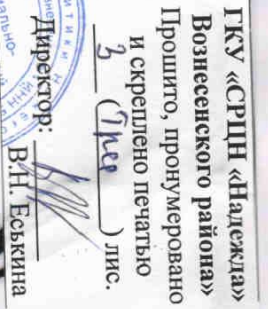 ГКУ «СРЦН «Надежда»
Вознесенского района»
Прошито, пронумеровано
и скреплено печатью
3 (Три) лис.
Директор: В.Н. Еськина